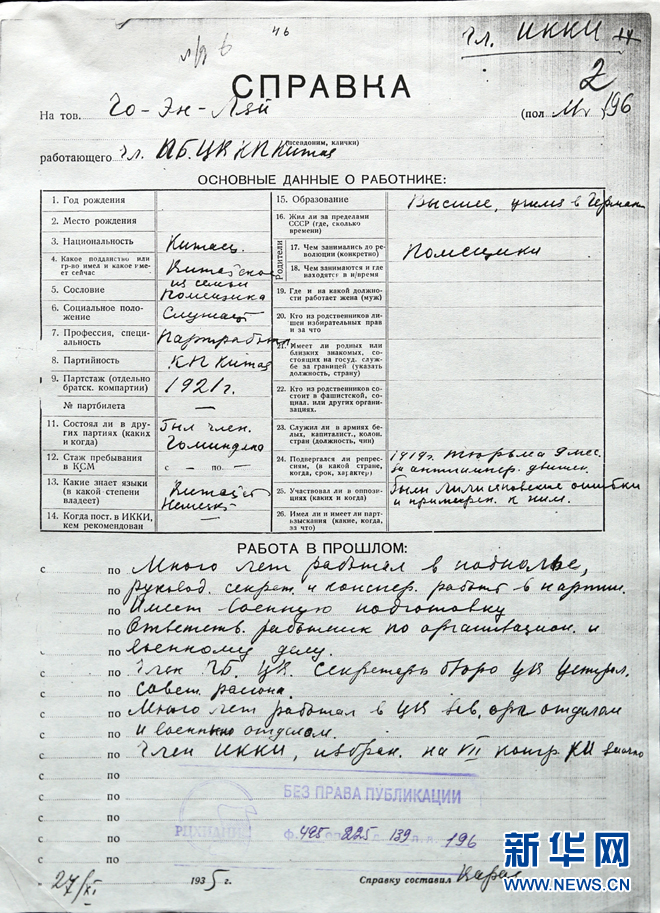 46
Чл. ИККИ
2
СПРАВКА
На тов. Чо-Эн-Лай (пол 196
(псевдоним, клички)
работающего Чл. П.Б. ЦК КП Китая
ОСНОВНЫЕ ДАННЫЕ О РАБОТНИКЕ:
1. Год рождения
2. Место рождения
3. Национальность Китаец
4. Какое подданство или гр-во имел и какое имеет сейчас Китайское
5. Сословие из семьи помещика
6. Социальное положение Служащ.
7. Профессия, специальность Партработн.
8. Партийность КП Китая
9. Партстаж (отдельно братск. компартии) 1921 г.
№ партбилета —
11. Состоял ли в других партиях (каких и когда) Был член. Гоминдана
12. Стаж пребывания в КСМ с — по —
13. Какие знает языки (в какой степени владеет) Китайск. Немецк.
14. Когда пост. в ИККИ, кем рекомендован
15. Образование Высшее, учился в Герман
16. Жил ли за пределами СССР (где, сколько времени)
Родители
17. Чем занимались до революции (конкретно) Помещики
18. Чем занимаются и где находятся в н/время
19. Где и на какой должности работает жена (муж)
20. Кто из родственников лишен избирательных прав и за что
21. Имеет ли родных или близких знакомых, состоящих на госуд. службе за границей (указать должность, страну)
22. Кто из родственников состоит в фашистской, социал. или других организациях.
23. Служил ли в армиях белых, капиталист., колон. стран (должность, чин)
24. Подвергался ли репрессиям, (в какой стране, когда, срок, характер) 1919 г. тюрьма 9 мес. за антиимпер. движен.
25. Участвовал ли в оппозициях (каких и когда) Были Лилисановские ошибки и примирен. к ним.
26. Имел ли и имеет ли партвзыскания (какие, когда, за что)
РАБОТА В ПРОШЛОМ:
с по Много лет работал в подполье,
по руковод. секрет. и конспер. работ в партии.
по Имеет военную подготовку
по Ответств. работник по организацион. и
по военному делу.
с по Член П.Б. ЦК. Секретарь бюро ЦК Централ.
по Совет. района.
с по Много лет работал в ЦК зав. орг отделом
с по и военным отделом.
с по Член ИККИ, избран. на VII конгр. КИ заочно
с по
с по
с по
с по
с по
БЕЗ ПРАВА ПУБЛИКАЦИИ
РЦХИДНИ
Ф. 495 оп. 225 д. 139 л. л. 196
27/XI 1935 г. Справку составил
新华网
WWW.NEWS.CN